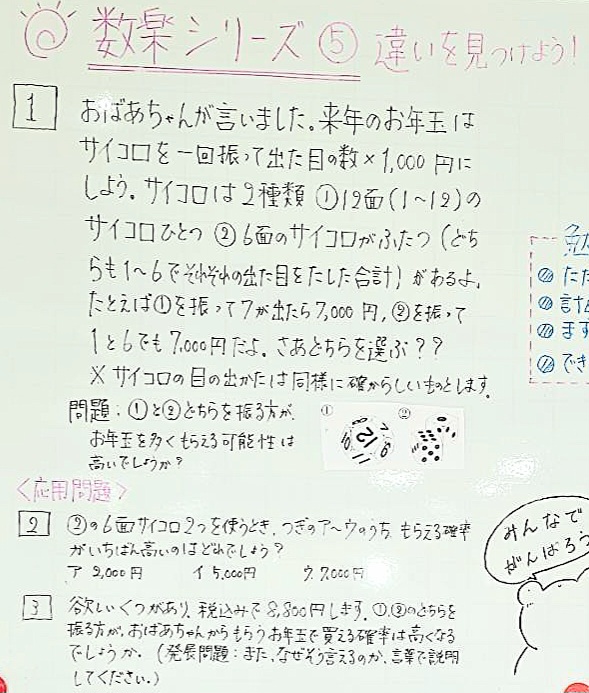 数楽シリーズ ⑤ 違いを見つけよう!
1 おばあちゃんが言いました。来年のお年玉は
サイコロを一回振って出た目の数×1,000円に
しよう。サイコロは2種類 ①12面(1~12)の
サイコロひとつ ②6面のサイコロがふたつ (どち
らも1~6でそれぞれの出た目をたした合計) があるよ。
たとえば①を振って7が出たら7,000円、②を振って
1と6でも7,000円だよ。さあどちらを選ぶ??
※サイコロの目の出かたは同様に確からしいものとします。
問題:①と②どちらを振る方が、
お年玉を多くもらえる可能性は
高いでしょうか?
① ②
12
<応用問題>
2 ②の6面サイコロ2つを使うとき、つぎのア~ウのうち、もらえる確率
がいちばん高いのはどれでしょう?
ア 2,000円 イ 5,000円 ウ 7,000円
3 欲しいくつがあり、税込みで8,800円します。①、②のどちらを
振る方が、おばあちゃんからもらうお年玉で買える確率は高くなる
でしょうか。(発展問題:また、なぜそう言えるのか、言葉で説明
してください。)
みんなで
がんばろう
ただ
ます
でき